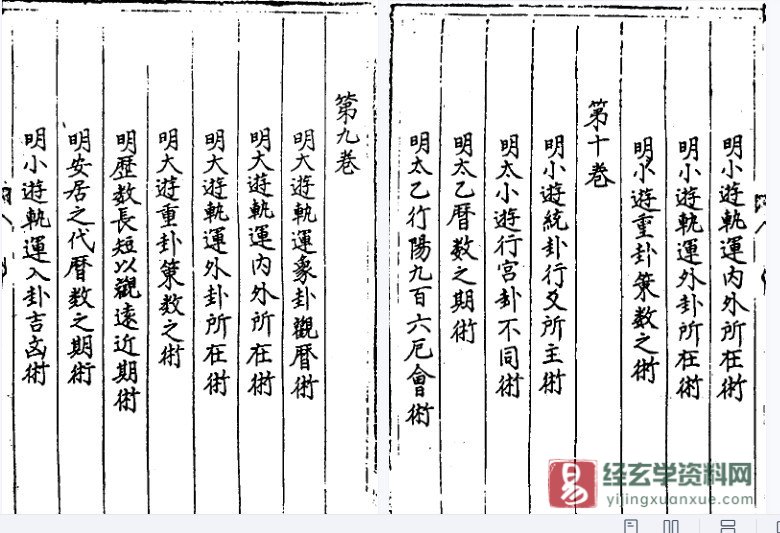 第九卷
明大遊軌運象卦觀暦術
明大遊軌運内外所在術
明大遊軌運外卦所在術
明大遊重卦策数之術
明歷数長短以觀遠近期術
明安居之代暦数之期術
明小遊軌運入卦吉凶術
明小遊軌運内外所在術
明小遊軌運外卦所在術
明小遊重卦策数之術
第十卷
明小遊統卦行爻所主術
明太小遊行宫卦不同術
明太乙暦数之期術
明太乙行陽九百六厄會術
易
经玄学资料网
yijingxuanxue.com